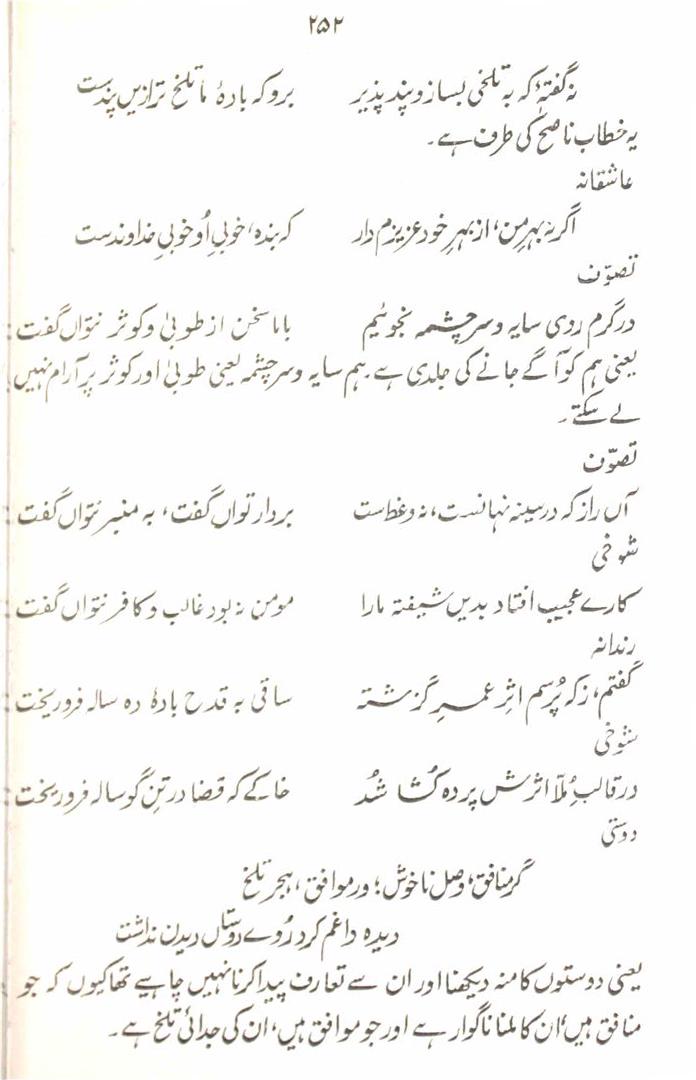 ۲۵۲
نہ گفتۂ کہ بہ تلخی بساز و پند پذیر بروکہ بادۂ ما تلخ ترازیں پندست
یہ خطاب ناصح کی طرف ہے۔
عاشقانہ
اگر نہ بہرِ من، از بہرِ خود عزیزم دار کہ بندہ، خوبیِ اُو خوبیِ خداوندست
تصوّف
در گرم روی سایہ و سرچشمہ نجوئیم باما سخن از طوبیٰ و کوثر نتواں گفت :
یعنی ہم کو آگے جانے کی جلدی ہے۔ ہم سایہ و سرچشمہ یعنی طوبیٰ اور کوثر پر آرام نہیں
لے سکتے۔
تصوّف
آں راز کہ در سینہ نہانست، نہ وعظ است بردار تواں گفت، بہ منبر نتواں گفت :
شوخی
کارے عجیب افتاد بدیں شیفتہ مارا مومن نہ بود غالب و کافر نتواں گفت :
رندانہ
گفتم، زکہ پُرسم اثرِ عمرِ گزشتہ ساقی بہ قدح بادۂ دہ سالہ فرو ریخت :
شوخی
در قالبِ مُلّا اثرش پردہ کُشا شُد خاکے کہ قضا در تنِ گوسالہ فرو ریخت :
دوستی
گر منافق، وصل ناخوش؛ ور موافق، ہجر تلخ
دیدہ داغم کرد رُوے دوستاں دیدن نداشت
یعنی دوستوں کا منہ دیکھنا اور ان سے تعارف پیدا کرنا نہیں چاہیے تھا کیوں کہ جو
منافق ہیں، اُن کا ملنا ناگوار ہے اور جو موافق ہیں، ان کی جدائی تلخ ہے۔